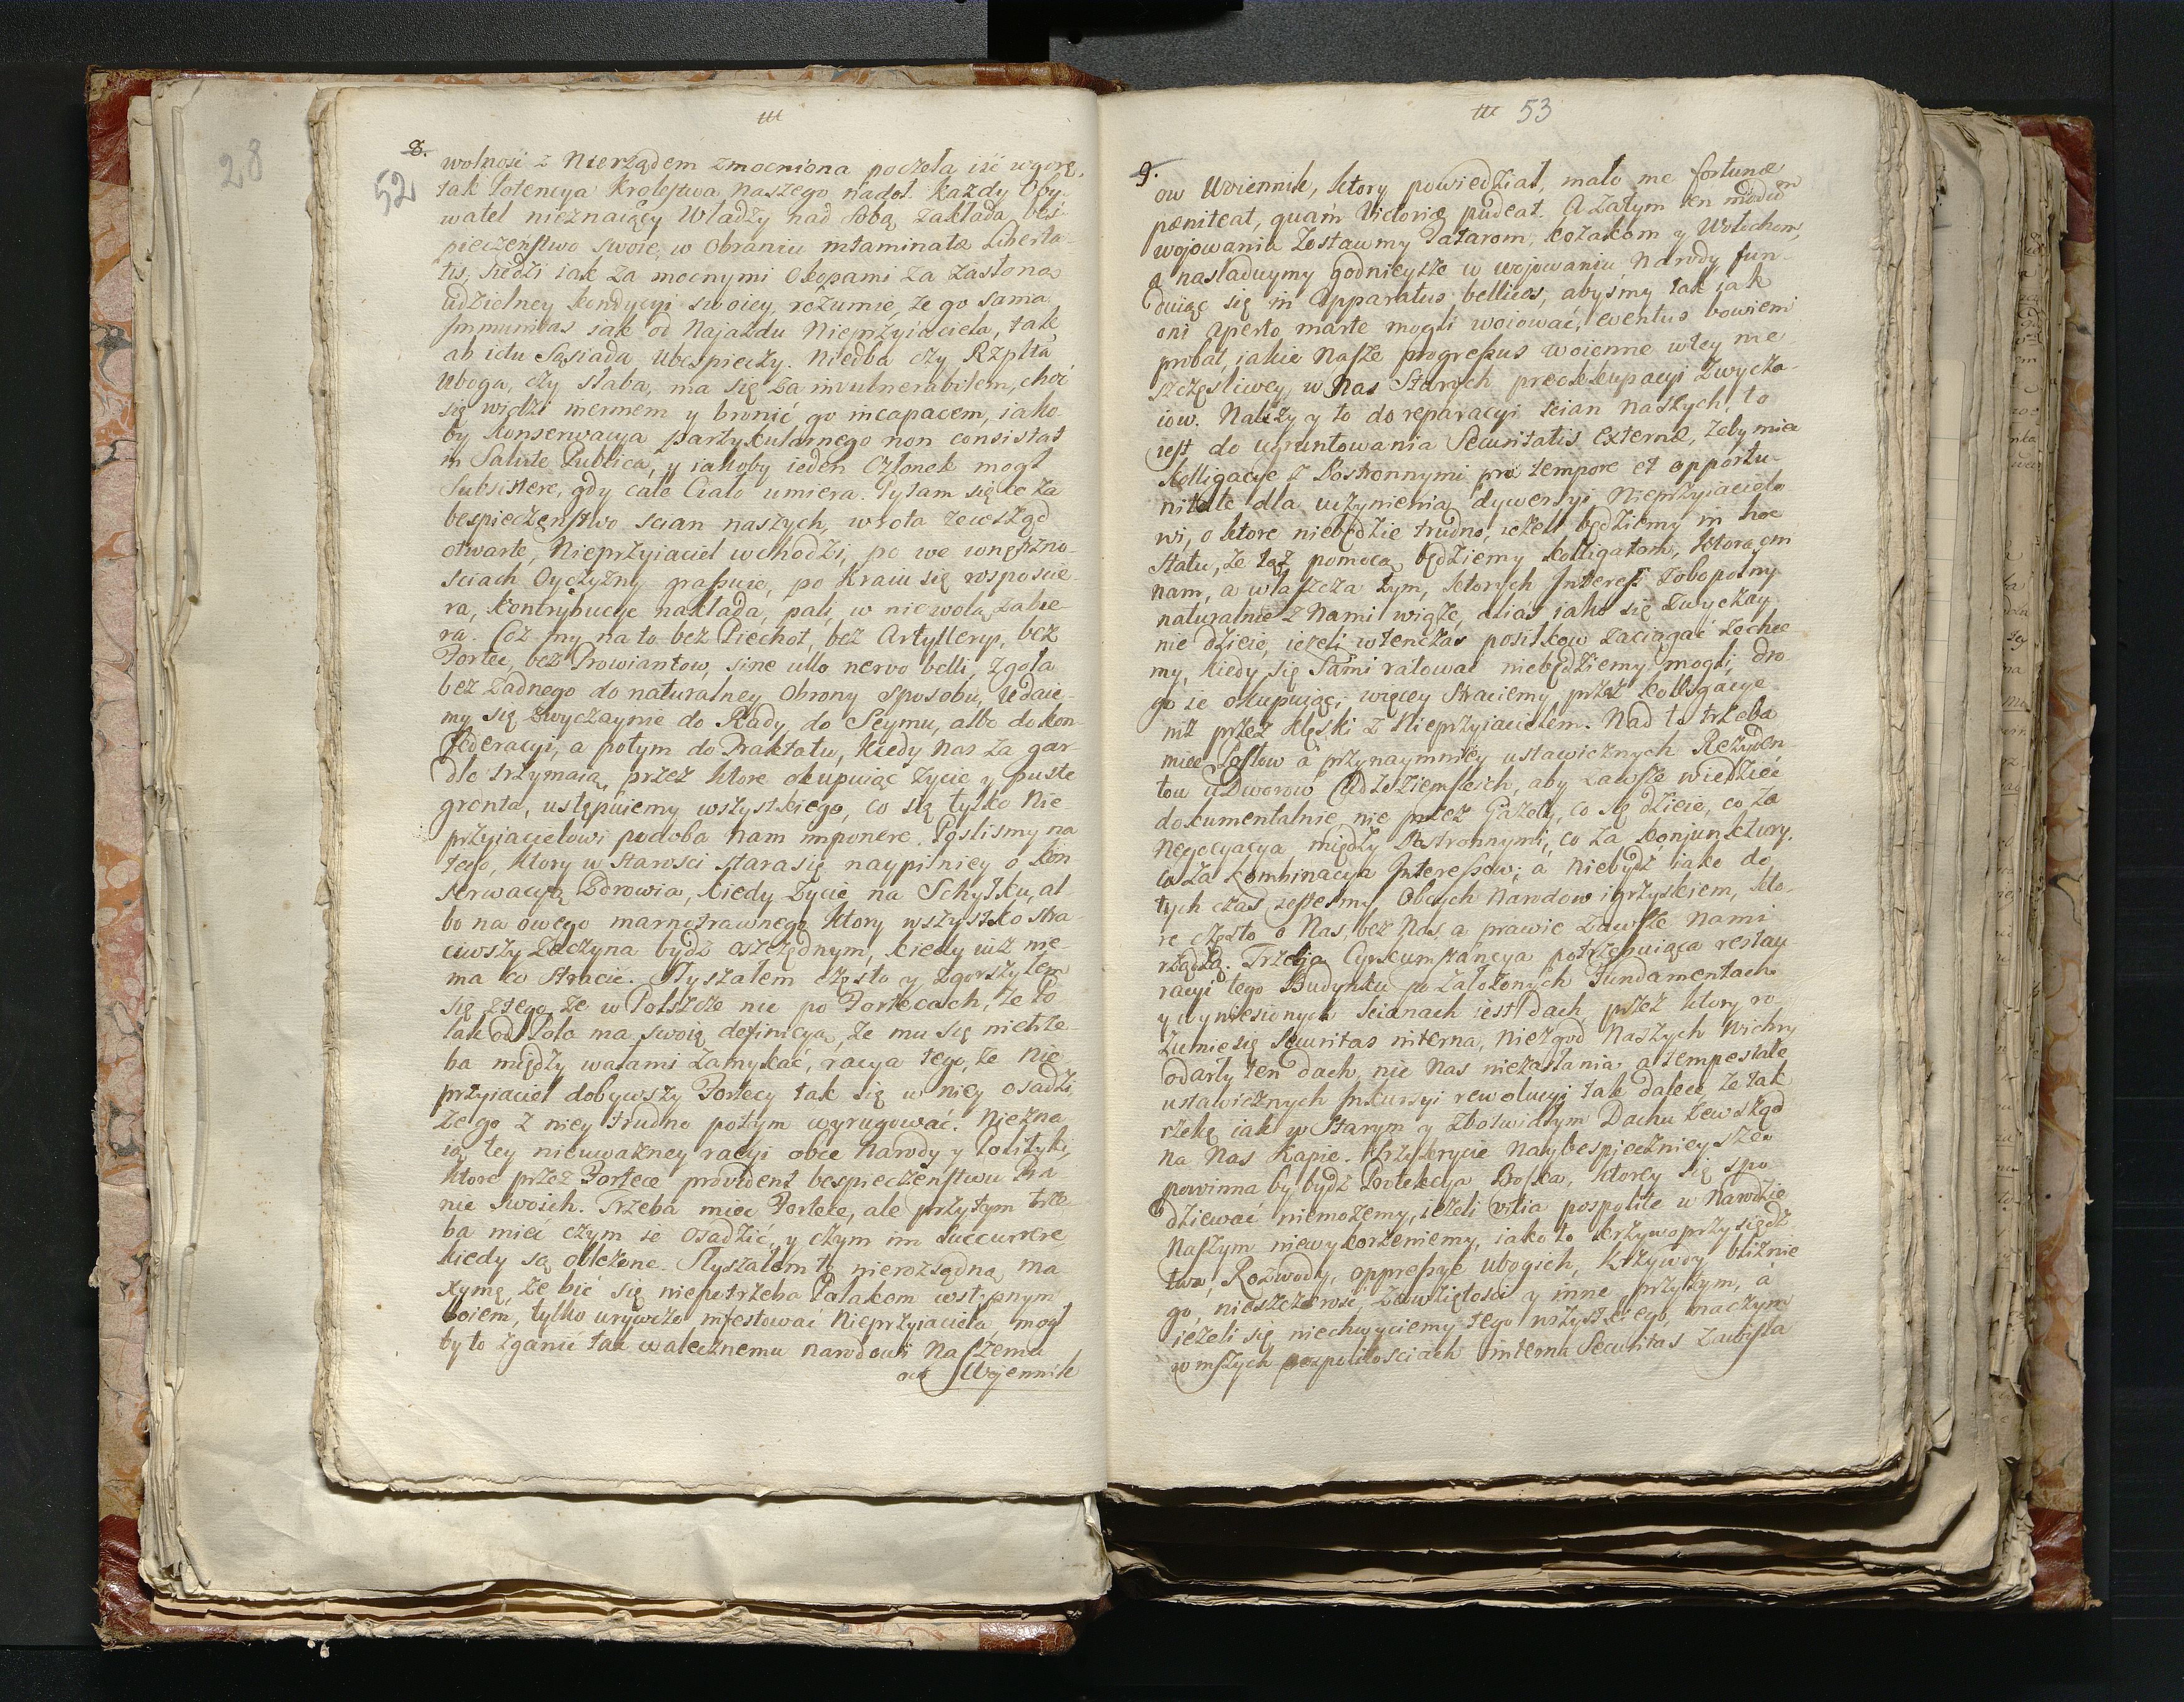 28
8.
52
wolnosć z Nierządem zmocniona poczęła iść wgorę,
tak Potencya Krolestwa naszego nadoł. Kazdy Oby-
watel nieznaiący Władzy nad Sobą zakłada bes-
pieczeństwo swoie, w Obraniu intaminatæ Liberta-
tis, siedzi iak za mocnymi Okopami za zasłoną
udzielney kondycyi swoiey, rozumie, że go sama
Immunitas iak od Najazdu Nieprzyiaciela, tak
ab ictu Sąsiada ubespieczy. Niedba czy Rzplta
Uboga, czy słaba, ma się za invulnerabilem, choć
się widzi inermem y bronić go incapacem, iako
by konserwacya partykularnego non consistat
in Salute Publica, y iakoby ieden Członek mogł
Subsistere, gdy całe Ciało umiera. Pytam się co za
bespieczęństwo scian naszych, wrota zewsząd
otwarte, Nieprzyiaciel wchodzi, po we wnętrzno-
sciach Oyczyzny grassuie, po Kraiu się rosposcie-
ra, kontrybucye nakłada, pali, w niewolą zabie-
ra. Coż my na to bez Piechot, bez Artylleryi, bez
Fortec, bez Prowiantow, sine ullo nervo belli, zgoła
bez żadnego do naturalney Obrony sposobu, Udaie-
my się zwyczaynie do Rady, do Seymu, albo do kon-
federacyi, a potym do Traktatu, kiedy nas za gar-
dło trzymaią, przez ktore okupuiąc życie y puste
gronta, ustępuiemy wszystkiego, co się tylko Nie
przyiacielowi podoba nam imponere. Poslismy na
tego, ktory w starosci stara się naypilniey o kon
serwacyą Zdrowia, kiedy życie na Schyłku, al-
bo na owego marnotrawnego ktory wszystko stra-
ciwszy Zaczyna bydź oszczędnym, kiedy iuż nie
ma co stracić. Słyszałem często y zgorszyłem
się z tego, że w Polszcze nic po Fortecach, że Po
lak od Pola ma swoię definicyą, że mu się nietrze
ba między wałami zamykać, racya tego, że Nie-
przyiaciel dobywszy Fortecy tak się w niey osadzi,
że go z niey trudno potym wyrugować. Niezna-
ią tey nieuważney racyi obce Narody y Polityki,
ktore przez Fortece provident bespieczeństwu Pa
nic swoich. Trzeba mieć Fortece, ale przytym trze-
ba mieć czym ie osadzić, y czym im Succurrere
kiedy są oblężone. Słyszałem tę nierozsądną ma
xymę, że bić się niepotrzeba Polakom wstępnym
boiem, tylko urywczo infestować Nieprzyiaciela, mogł
by to zganić tak walecznemu narodowi Naszemu
ow Woiennik
53
9.
ow Woiennik, ktory powiedział, malo me fortunæ
pæniteat, quàm Victoriæ pudeat. A zatym ten modum
wojowania zostawmy Tatarom, kozakom y Wołochom,
a nasladuymy godnieysze w wojowaniu Narody, fun-
duiąc się in Apparatus bellicos, abysmy tak iak
oni aperto marte mogli woiować, eventus bowiem
probat, iakie Nasze progressus woienne w tey nie
szczęsliwey w Nas Starych preokkupacyi zwycza-
iow. Należy y to do reparacyi scian naszych, to
iest do ugruntowania Securitatis Externæ, żeby mieć
kolligacye z Postronnymi pro tempore et opportu-
nitate dla uczynienia dywersyi Nieprzyiacielo
wi, o ktore niebędzie trudno, ieżeli będziemy in hoc
statu, że tąż pomocą będziemy kolligatom, ktorą oni
nam, a właszcza tym, ktorych Interess zobopolny
naturalnie z Nami wiąże, alias iako się zwyczay
nie dzieie, ieżeli wtenczas posiłkow zaciągać zechce
my, kiedy się Sami ratować niebędziemy mogli, dro
go ie okupuiąc, więcey stracimy przez kolligacye
niż przez klęski z Nieprzyiacielem. Nad to trzeba
mieć Posłow a przynaymniey ustawicznych Rezyden-
tow u Dworow Cudzoziemskich, aby zawsze wiedzieć
dokumentalnie nie przez Gazety, co się dzieie, co za
Negocyacya między Postronnymi, co za konjunktury,
co za kombinacya Interessow, a niebydź iako do
tych czas iestesmy Obcych Narodow igrzyskiem, kto-
re często o Nas bez Nas, a prawie zawsze Nami
rządzą. Trzecia Cyrkumstancya potrzebuiąca restau-
racyi tego Budynku po założonych Fundamentach
y wyniesionych scianach iest dach, przez ktory ro
zumie się Securitas interna, niezgod Naszych Wichry
odarły ten dach, nic Nas niezasłania a tempestate
ustawicznych Inkursyi rewolucyi tak dalece, że tak
rzekę iak w Starym y zbotwiałym Dachu zewsząd
na Nas kapie. Przykrycie naybespiecznieysze
powinna by bydź Protekcya Boska, ktorey się spo
dziewać niemożemy, ieżeli vitia pospolite w Narodzie
Naszym niewykorzeniemy, iako to krzywoprzysiędz
twa, Rozwody, oppressye ubogich, krzywdy bliznie
go, nieszczerość, zawziętosci y inne przytym, à
ieżeli się niechwyciemy tego wszystkiego, na czym
w inszych pospolitosciach interna Securitas zawisła